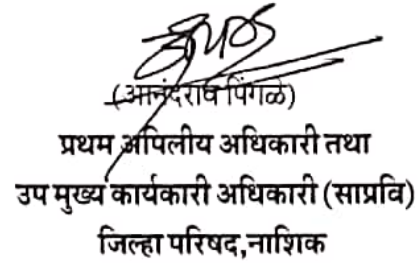 (आनंदराव पिंगळे)
प्रथम अपिलीय अधिकारी तथा
उप मुख्य कार्यकारी अधिकारी (साप्रवि)
जिल्हा परिषद,नाशिक